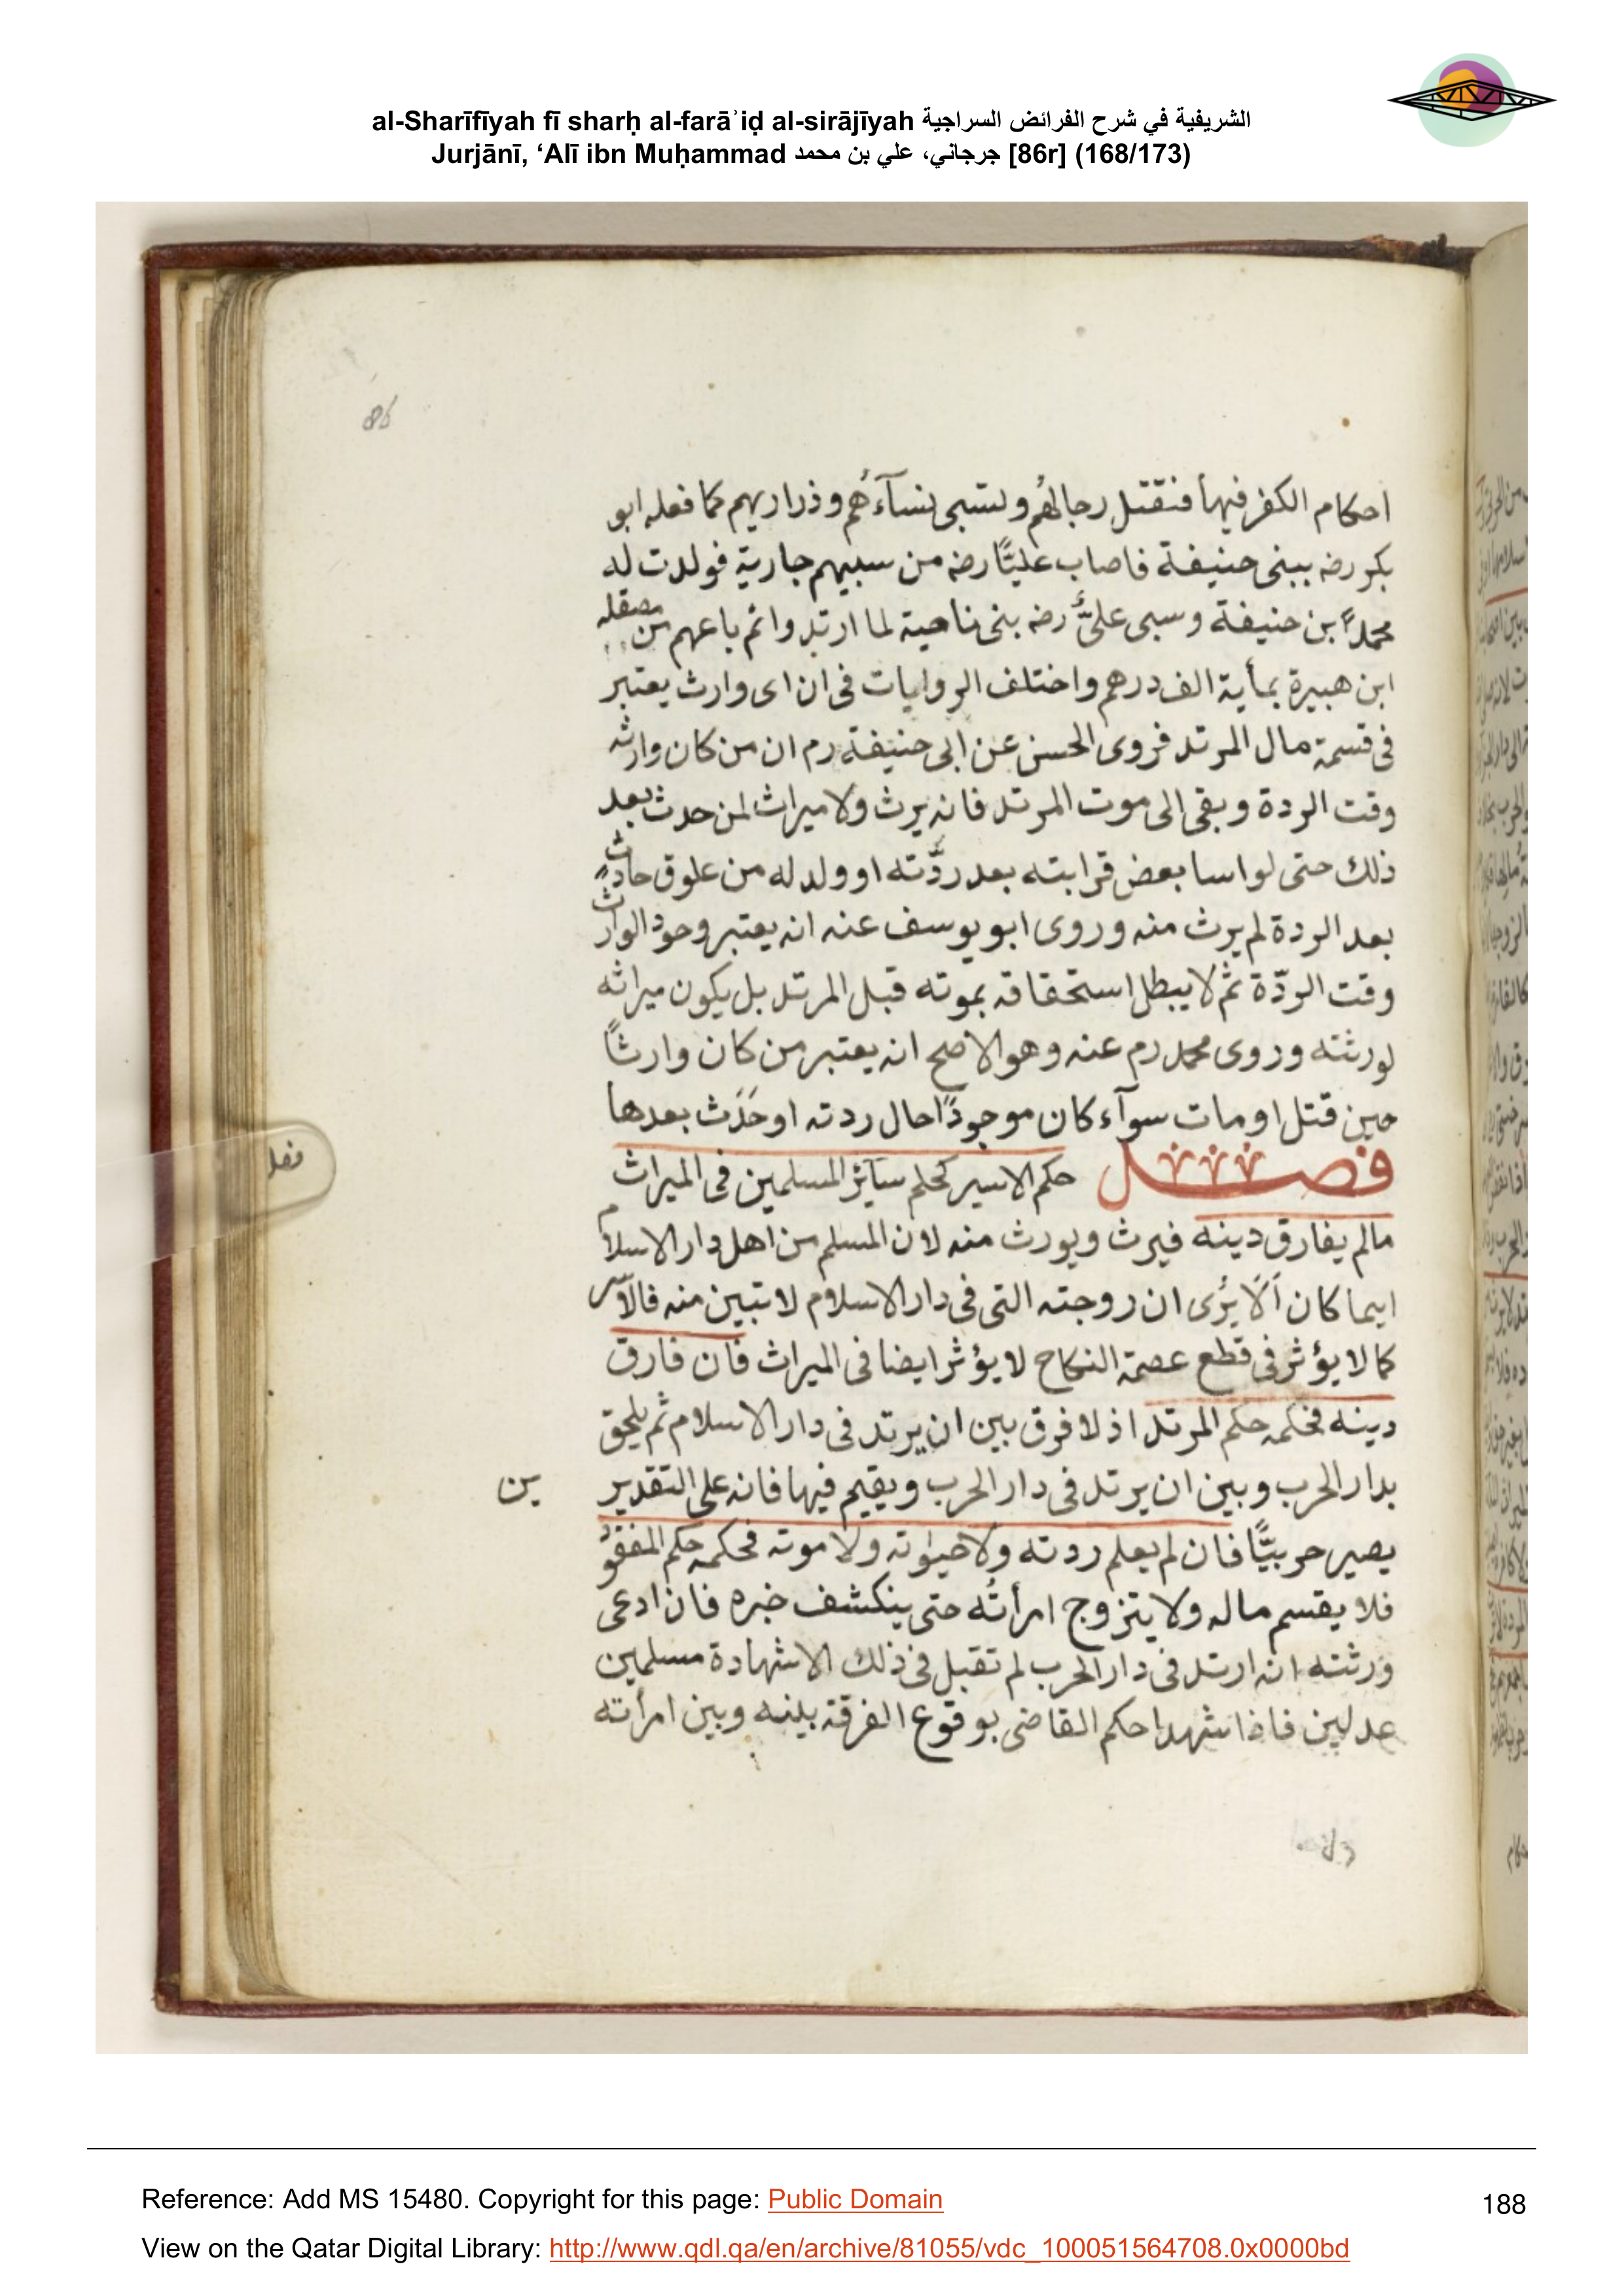 al-Sharīfīyah fī sharḥ al-farāʾiḍ al-sirājīyah الشريفية في شرح الفرائض السراجية
Jurjānī, ‘Alī ibn Muḥammad جرجاني، علي بن محمد [86r] (168/173)
86
احكام الكفر فيها فنقتل رجالهُم ولتسبى نسآءهُم وذراريهم كما فعله ابو
بكر رضه ببنى حنيفة فاصاب عليًّا رضه من سبيهم جارية فولدت له
محمدًا بن حنيفة وسبى علىٌّ رضه بنى ناحية لما ارتدوا ثم باعهم من مصقله
ابن هبيرة بمأية الف درهم واختلف الروايات فى ان اى وارث يعتبر
فى قسمة مال المرتد فروى الحسن عن ابى حنيفة رم ان من كان وارثه
وقت الردة وبقى الى موت المرتد فانه يرث ولا ميراث لمن حدث بعد
ذلك حتى لو اسا بعض قرابته بعد ردّته او ولد له من علوق حادث
بعد الردة لم يرث منه وروى ابو يوسف عنه انه يعتبر وجود الوارث
وقت الردّة ثم لا يبطل استحقاقه بموته قبل المرتد بل يكون ميراثه
لورثته وروى محمد رم عنه وهو الاصح انه يعتبر من كان وارثًا
حين قتل او مات سوآء كان موجودًا حال ردته او حَدَث بعدها
فصل حكم الاسير كحكم سآئر المسلمين فى الميراث
مالم يفارق دينه فيرث ويورث منه لان المسلم من اهل دار الاسلام
اينما كان اَلَا يُرى ان زوجته التى فى دار الاسلام لا تبين منه فالاسر
كما لا يؤثر فى قطع عصمة النكاح لا يؤثر ايضا فى الميراث فان فارق
دينه فحكمه حكم المرتد اذ لا فرق بين ان يرتد فى دار الاسلام ثم يلحق
بدار الحرب وبين ان يرتد فى دار الحرب ويقيم فيها فانه على التقدير
ين
يصير حربيًّا فان لم يعلم ردته ولا حيوته ولا موته فحكمه حكم المفقود
فلا يقسم ماله ولا يتزوج امرأتُه حتى ينكشف خبره فان ادعى
ورثته انه ارتد فى دار الحرب لم تقبل فى ذلك الا شهادة مسلمين
عدلين فاذا شهدا حكم القاضى بوقوع الفرقة بينه وبين امرأته
Reference: Add MS 15480. Copyright for this page: Public Domain
188
View on the Qatar Digital Library: http://www.qdl.qa/en/archive/81055/vdc_100051564708.0x0000bd